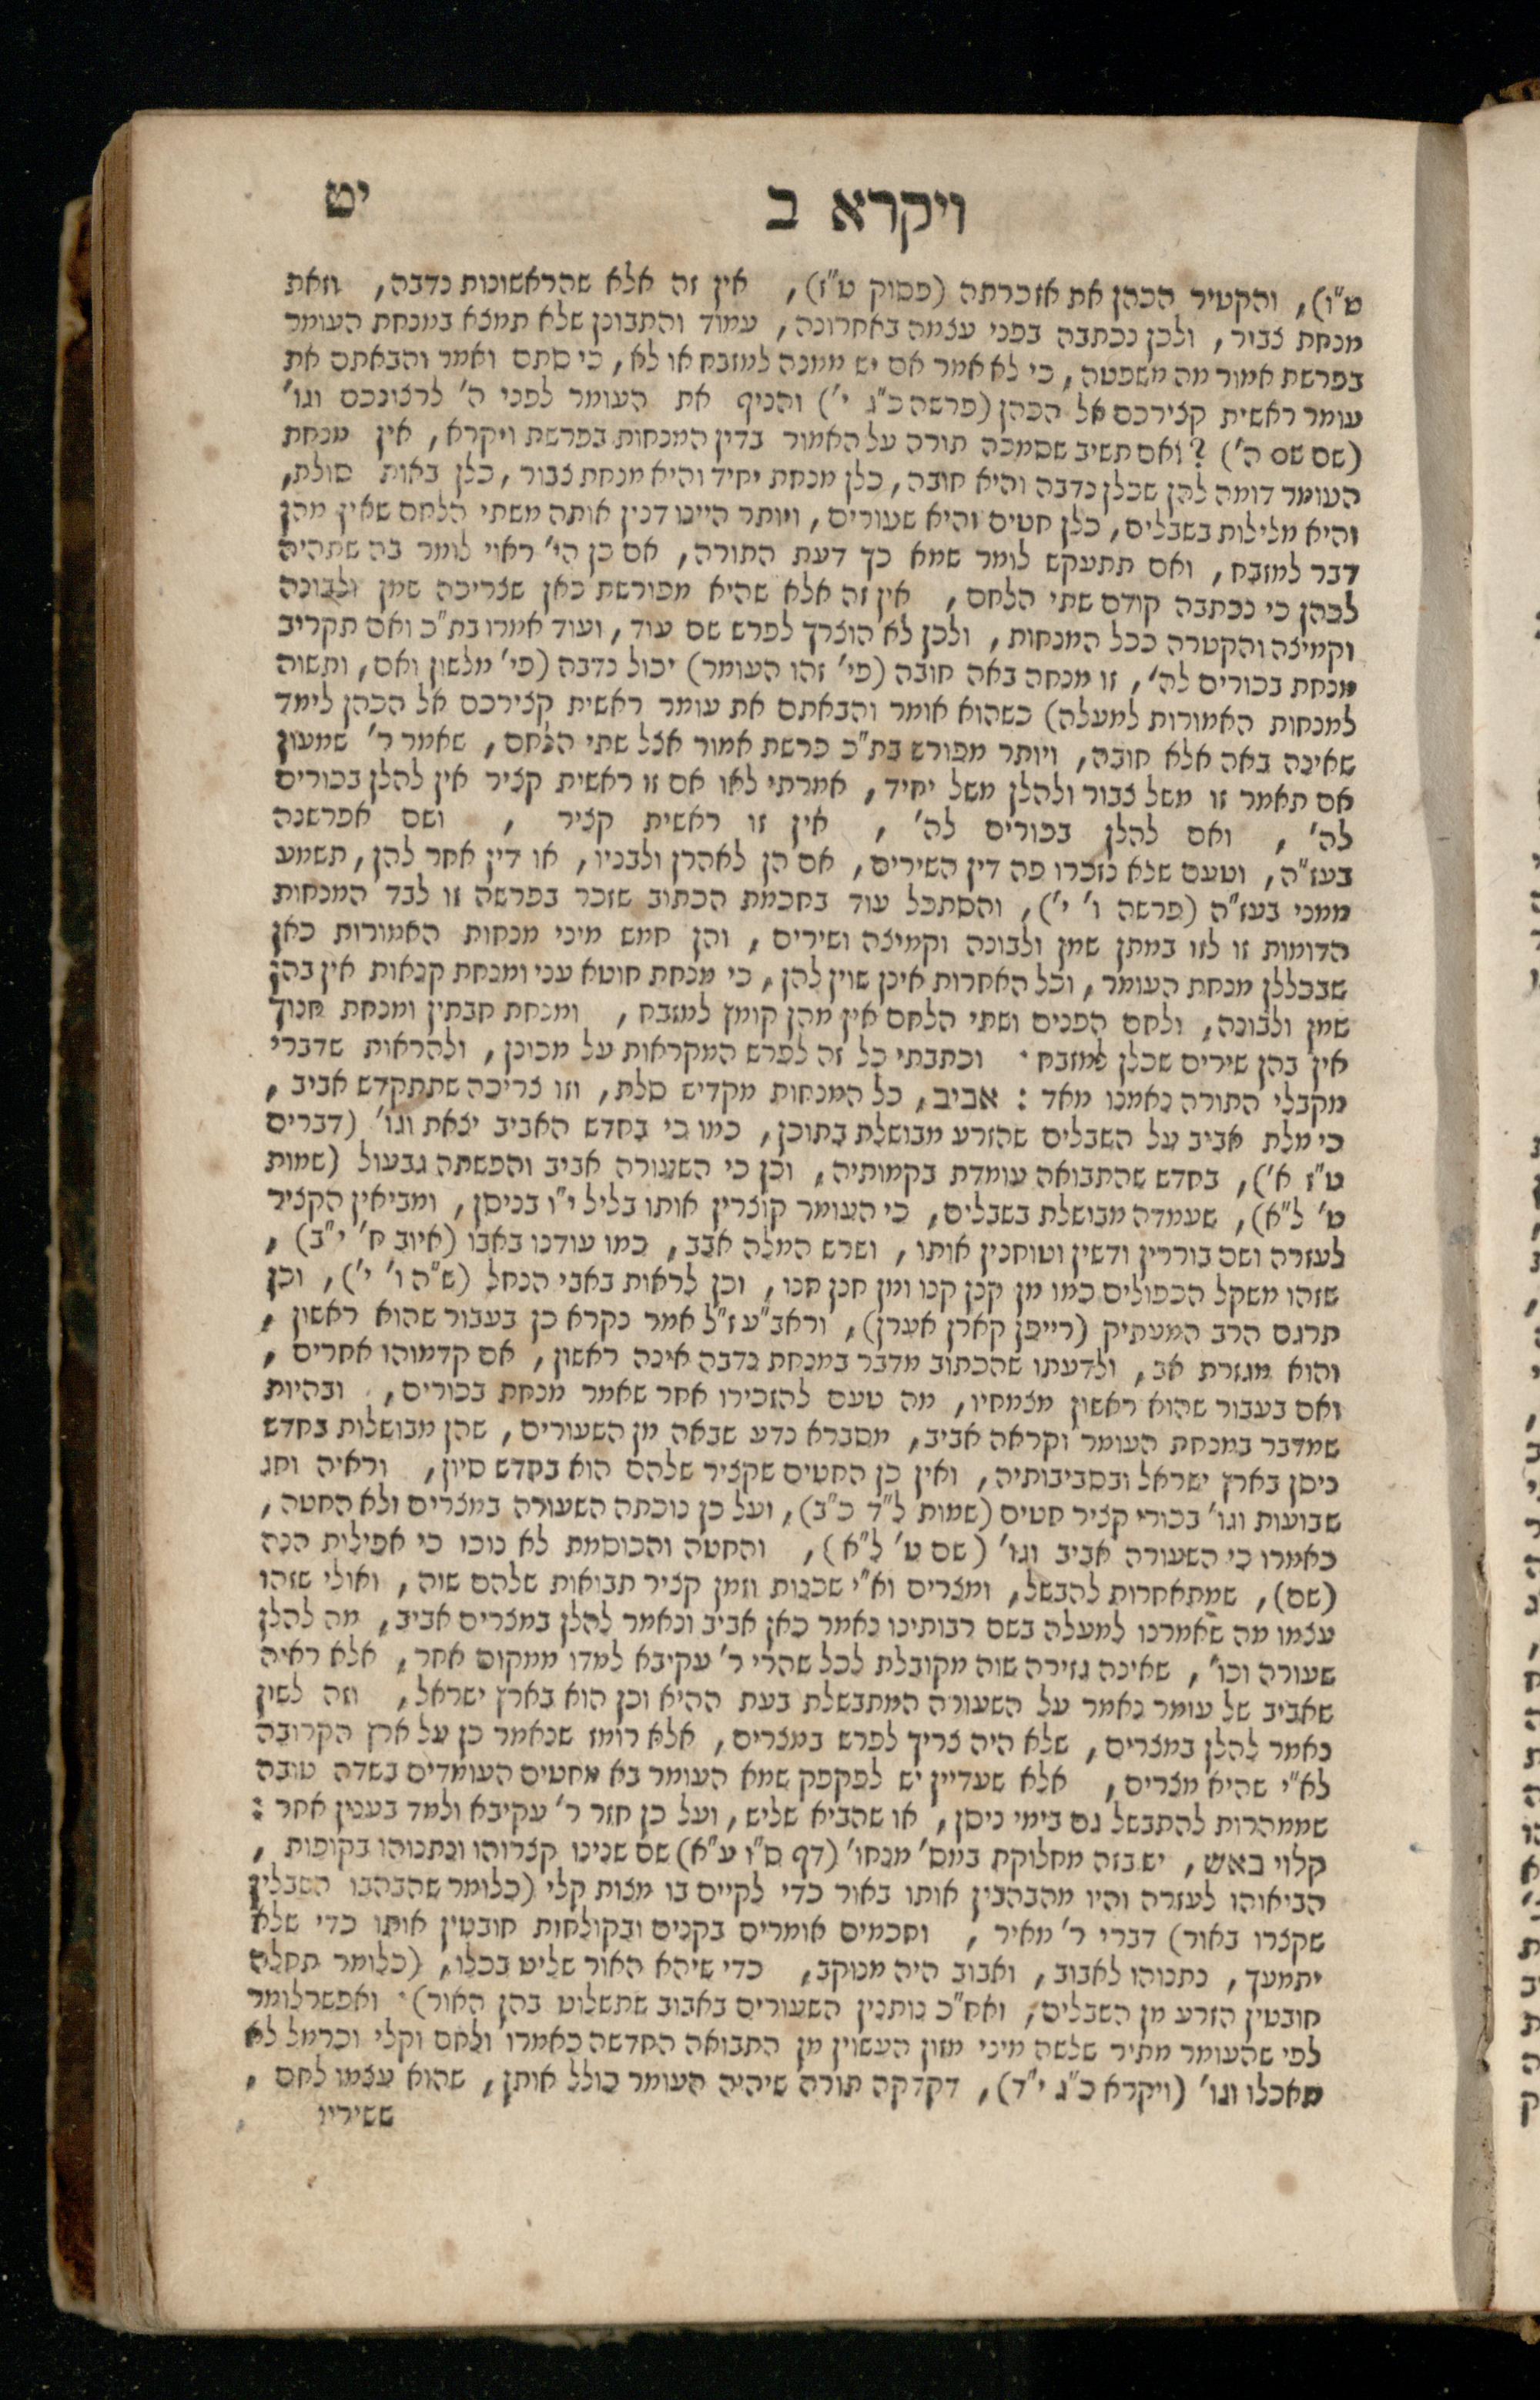 ויקרא ב יט
ט"ו), והקטיר הכהן את אזכרתה (פסוק ט"ז), אין זה אלא שהראשונות נדבה, וזאת
מנחת צבור, ולכן נכתבה בפני עצמה באחרונה, עמוד והתבונן שלא תמצא במנחת העומר
בפרשת אמור מה משפטה, כי לא אמר אם יש ממנה למזבח או לא, כי סתם ואמר והבאתם את
עומר ראשית קצירכם אל הכהן (פרשה כ"ג י') והניף את העומר לפני ה' לרצונכם וגו'
(שם שם ה') ? ואם תשיב שסמכה תורה על האמור בדין המנחות בפרשת ויקרא, אין מנחת
העומר דומה להן שכלן נדבה והיא חובה, כלן מנחת יחיד והיא מנחת צבור, כלן באות סולת,
והיא מלילות בשבלים, כלן חטים והיא שעורים, ויותר היינו דנין אותה משתי הלחם שאין מהן
דבר למזבח, ואם תתעקש לומר שמא כך דעת התורה, אם כן הי' ראוי לומר בה שתהיה
לכהן כי נכתבה קודם שתי הלחם, אין זה אלא שהיא מפורשת כאן שצריכה שמן ולבונה
וקמיצה והקטרה ככל המנחות, ולכן לא הוצרך לפרש שם עוד, ועוד אמרו בת"כ ואם תקריב
מנחת בכורים לה', זו מנחה באה חובה (פי' זהו העומר) יכול נדבה (פי' מלשון ואם, ותשוה
למנחות האמורות למעלה) כשהוא אומר והבאתם את עומר ראשית קצירכם אל הכהן לימד
שאינה באה אלא חובה, ויותר מפורש בת"כ פרשת אמור אצל שתי הלחם, שאמר ר' שמעון
אם תאמר זו משל צבור ולהלן משל יחיד, אמרתי לאו אם זו ראשית קציר אין להלן בכורים
לה', ואם להלן בכורים לה', אין זו ראשית קציר, ושם אפרשנה
בעז"ה, וטעם שלא נזכרו פה דין השירים, אם הן לאהרן ולבניו, או דין אחר להן, תשמע
ממני בעז"ה (פרשה ו' י'), והסתכל עוד בחכמת הכתוב שזכר בפרשה זו לבד המנחות
הדומות זו לזו במתן שמן ולבונה וקמיצה ושירים, והן חמש מיני מנחות האמורות כאן
שבכללן מנחת העומר, וכל האחרות אינן שוין להן, כי מנחת חוטא עני ומנחת קנאות אין בהן
שמן ולבונה, ולחם הפנים ושתי הלחם אין מהן קומץ למזבח, ומנחת חבתין ומנחת חנוך
אין בהן שירים שכלן למזבח. וכתבתי כל זה לפרש המקראות על מכונן, ולהראות שדברי
מקבלי התורה נאמנו מאד : אביב, כל המנחות מקדיש סלת, וזו צריכה שתתקדש אביב,
כי מלת אביב על השבלים שהזרע מבושלת בתוכן, כמו כי בחדש האביב יצאת וגו' (דברים
ט"ז א'), בחדש שהתבואה עומדת בקמותיה, וכן כי השעורה אביב והפשתה גבעול (שמות
ט' ל"א), שעמדה מבושלת בשבלים, כי העומר קוצרין אותו בליל י"ו בניסן, ומביאין הקציר
לעזרה ושם בוררין ודשין וטוחנין אותו, ושרש המלה אבב, כמו עודנו באבו (איוב ח' י"ב),
שזהו משקל הכפולים כמו מן קנן קנו ומן חנן חנו, וכן לראות באבי הנחל (ש"ה ו' י'), וכן
תרגם הרב המעתיק (רייפן קארן אערן), וראב"ע ז"ל אמר נקרא כן בעבור שהוא ראשון,
והוא מגזרת אב, ולדעתו שהכתוב מדבר במנחת נדבה אינה ראשון, אם קדמוהו אחרים,
ואם בעבור שהוא ראשון מצמחיו, מה טעם להזכירו אחר שאמר מנחת בכורים, ובהיות
שמדבר במנחת העומר וקראה אביב, מסברא נדע שבאה מן השעורים, שהן מבושלות בחדש
ניסן בארץ ישראל ובסביבותיה, ואין כן החטים שקציר שלהם הוא בחדש סיון, וראיה וחג
שבועות וגו' בכורי קציר חטים (שמות ל"ד כ"ב), ועל כן נוכתה השעורה במצרים ולא החטה,
כאמרו כי השעורה אביב וגו' (שם ט' ל"א), והחטה והכוסמת לא נוכו כי אפילות הנה
(שם), שמתאחרות להבשל, ומצרים וא"י שכנות וזמן קציר תבואות שלהם שוה, ואולי שזהו
עצמו מה שאמרנו למעלה בשם רבותינו נאמר כאן אביב ונאמר להלן במצרים אביב, מה להלן
שעורה וכו', שאינה גזירה שוה מקובלת לכל שהרי ר' עקיבא למדו ממקום אחר, אלא ראיה
שאביב של עומר נאמר על השעורה המתבשלת בעת ההיא וכן הוא בארץ ישראל, וזה לשון
נאמר להלן במצרים, שלא היה צריך לפרש במצרים, אלא רומז שנאמר כן על ארץ הקרובה
לא"י שהיא מצרים, אלא שעדיין יש לפקפק שמא העומר בא מחטים העומדים בשדה טובה
שממהרות להתבשל גם בימי ניסן, או שהביא שליש, ועל כן חזר ר' עקיבא ולמד בענין אחר :
קלוי באש, יש בזה מחלוקת במס' מנחו' (דף ס"ו ע"א) שם שנינו קצרוהו ונתנוהו בקופות,
הביאוהו לעזרה והיו מהבהבין אותו באור כדי לקיים בו מצות קלי (כלומר שהבהבו השבלין
שקצרו באור) דברי ר' מאיר, וחכמים אומרים בקנים ובקולחות חובטין אותו כדי שלא
יתמעך, נתנוהו לאבוב, ואבוב היה מנוקב, כדי שיהא האור שליט בכלו, (כלומר תחלה
חובטין הזרע מן השבלים, ואח"כ נותנין השעורים באבוב שתשלוט בהן האור). ואפשר לומר
לפי שהעומר מתיר שלשה מיני מזון העשוין מן התבואה החדשה כאמרו ולחם וקלי וכרמל לא
תאכלו וגו' (ויקרא כ"ג י"ד), דקדקה תורה שיהיה העומר כולל אותן, שהוא עצמו לחם,
ששיריו